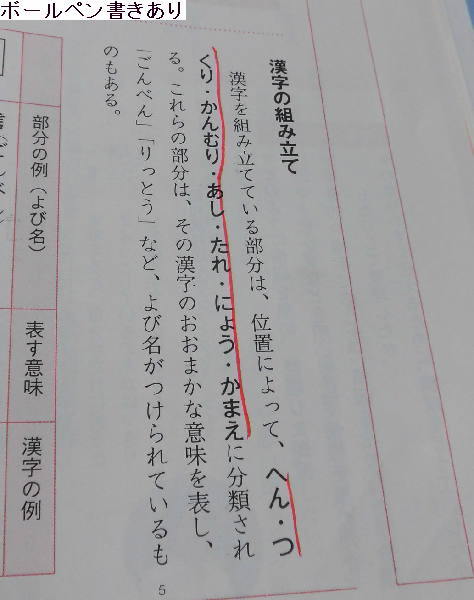 ボールペン書きあり
漢字の組み立て
漢字を組み立てている部分は、位置によって、へん・つ
くり・かんむり・あし・たれ・にょう・かまえに分類され
る。これらの部分は、その漢字のおおまかな意味を表し、
「ごんべん」「りっとう」など、よび名がつけられているも
のもある。
部分の例（よび名）
表す意味
漢字の例
5